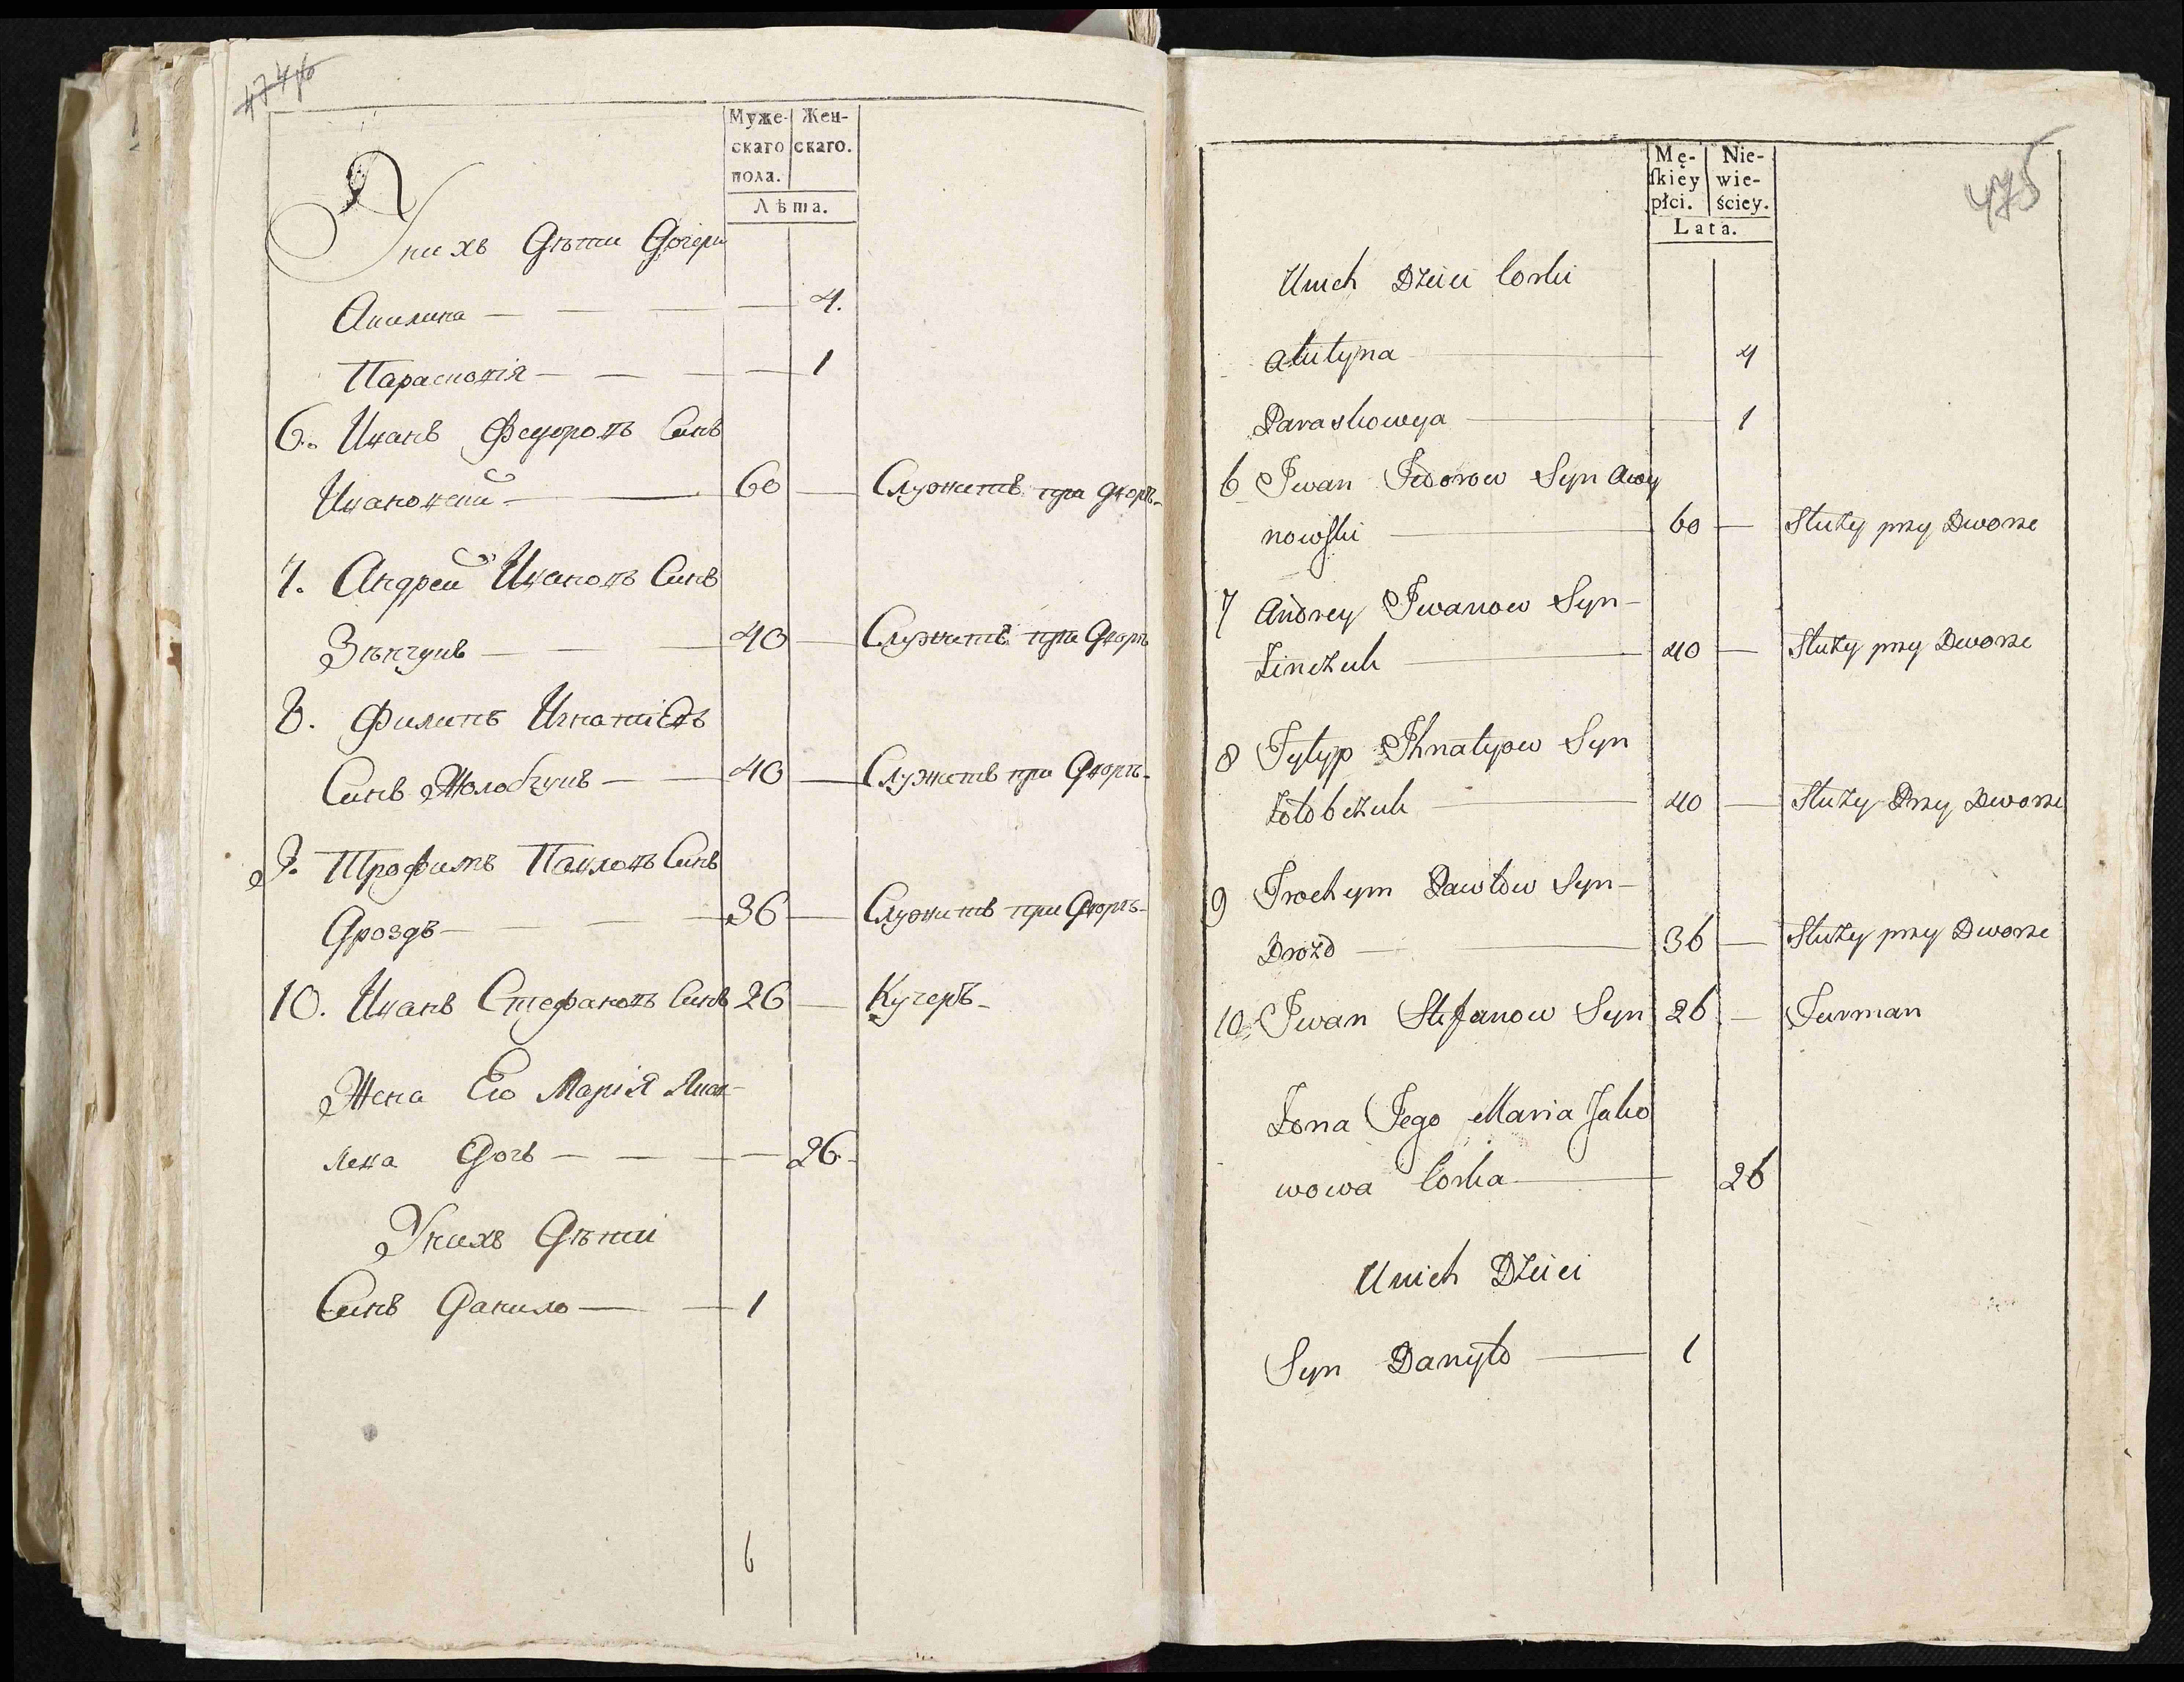 474 об
Муже-
скаго
пола.
Жен-
скаго.
Лѣта.
У нихъ Дѣти Дочери
Акилина — 4.
Парасковія — 1
6. Иванъ Федоровъ Синъ
Ивановскій — 60 — Служитъ при дворѣ
7. Андрей Ивановъ Синъ
Зѣнчукъ — 40 — Служитъ при Дворѣ
8. Филипъ Игнатіевъ
Синъ Жолобчукъ — 40 — Служитъ при Дворѣ
9. Трофимъ Павловъ Синъ
Дроздъ — 36 — Служитъ при Дворѣ
10. Иванъ Стефановъ Синъ 26 — Кучеръ
Жена Ево Марія Яков-
лева Дочь — 26
У нихъ Дѣти
Синъ Данило — 1
6
475
Mę-
ſkiey
płci.
Nie-
wie-
ściey.
Lata.
Unich Dzieci Corki
Akilyna — 4
Paraskowya — 1
6 Iwan Fedorow Syn
nowſki — 60 — Służy przy Dworze
7 Andrey Iwanow Syn
Zinczuk — 40 — Służy przy Dworze
8 Fylyp Ihnatyow Syn
Żołobczuk — 40 — Służy Przy Dworze
9 Trochym Pawłow Syn
Drozd — 36 — Służy przy Dworze
10 Iwan Stefanow Syn 26 — Furman
Żona Jego Maria Jako
wowa Corka — 26
Unich Dzieci
Syn Danyło — 1